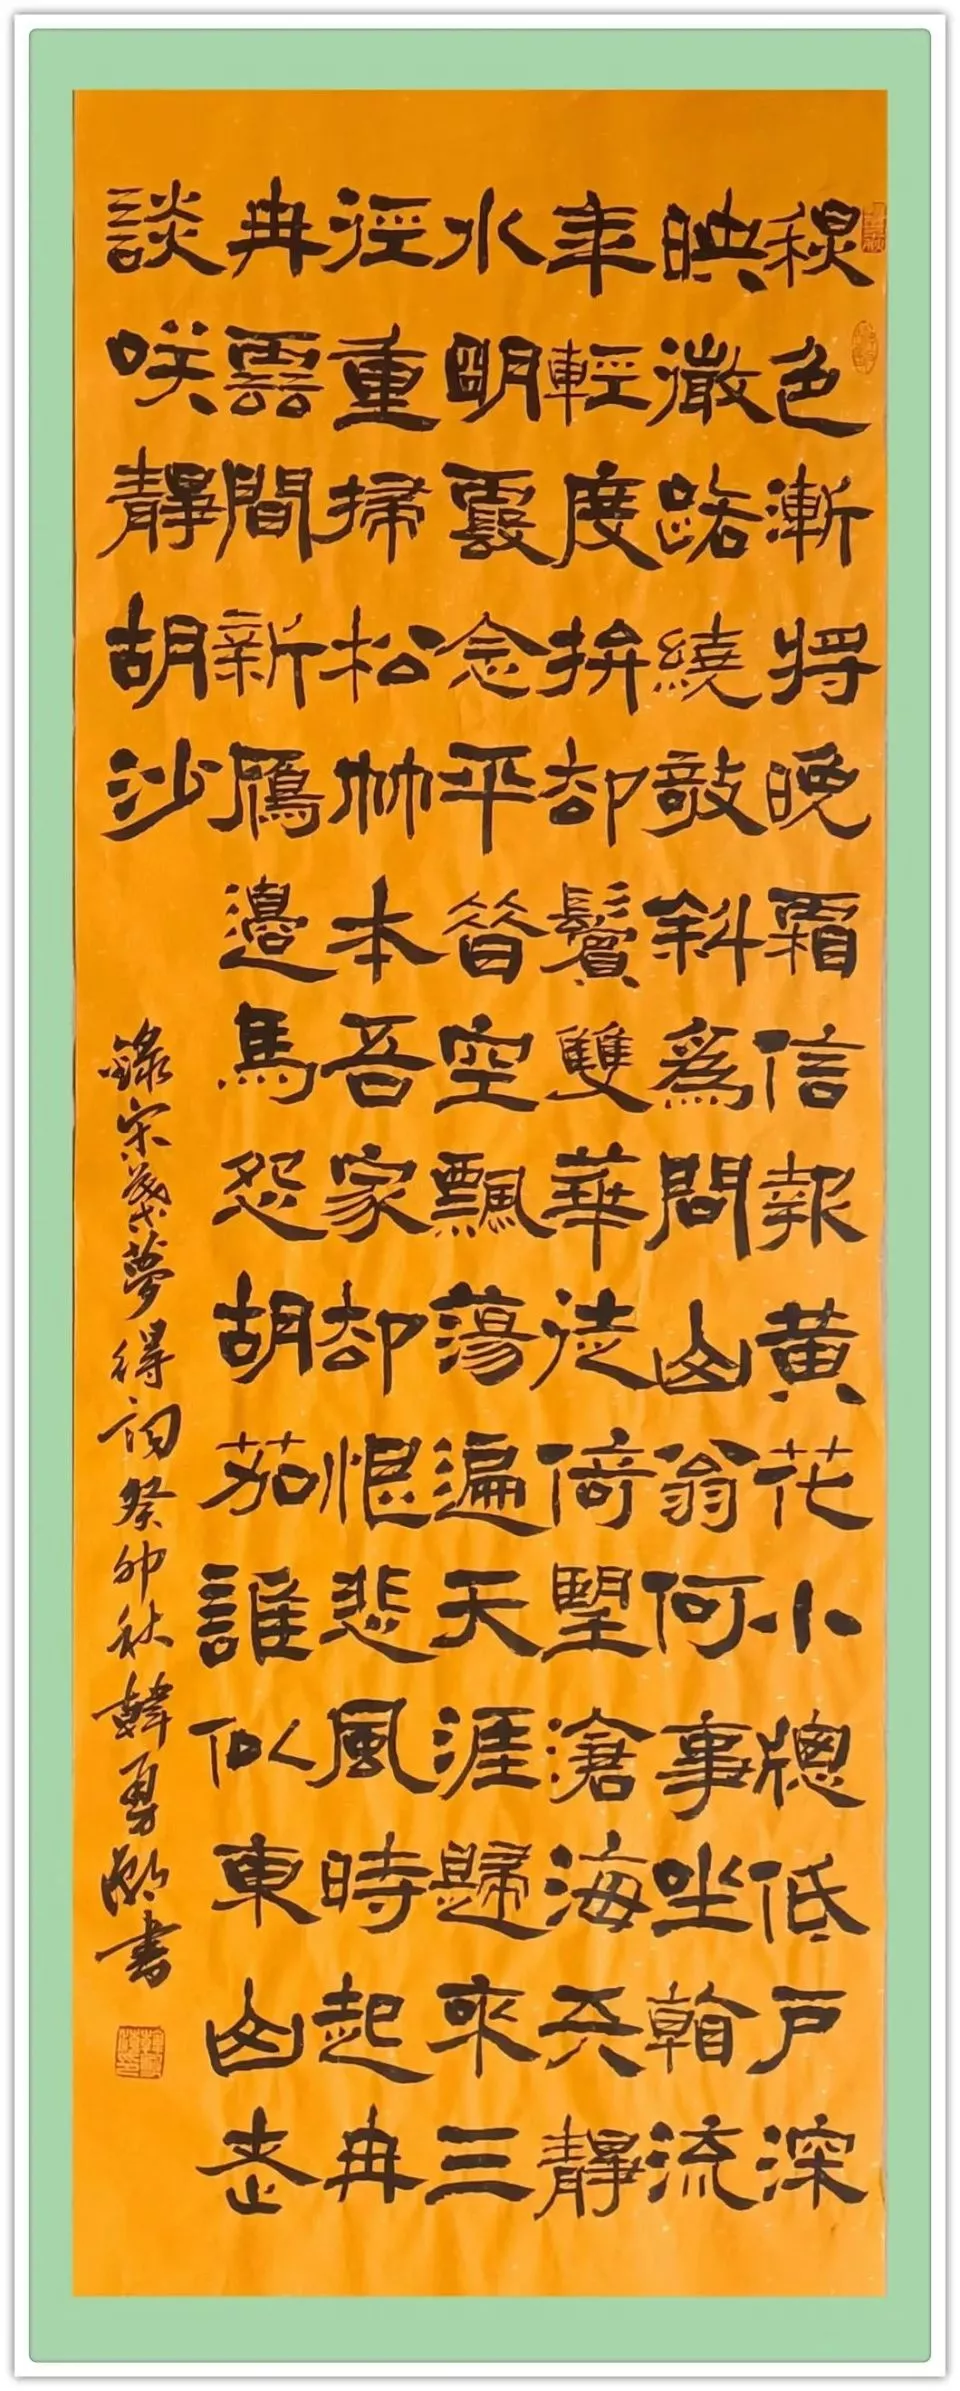 秋色漸將晚霜信報黃花小牕低戶深
映微路繞敧斜爲問山翁何事坐看流
年輕度拚却鬢雙華徒倚望滄海天靜
水明霞念平昔空飄蕩遍天涯歸來三
徑重掃松竹本吾家却恨悲風時起冉
冉雲間新鴈邊馬怨胡笳誰似東山老
談咲靜胡沙
錄宋葉夢得詞癸卯秋韓勇書